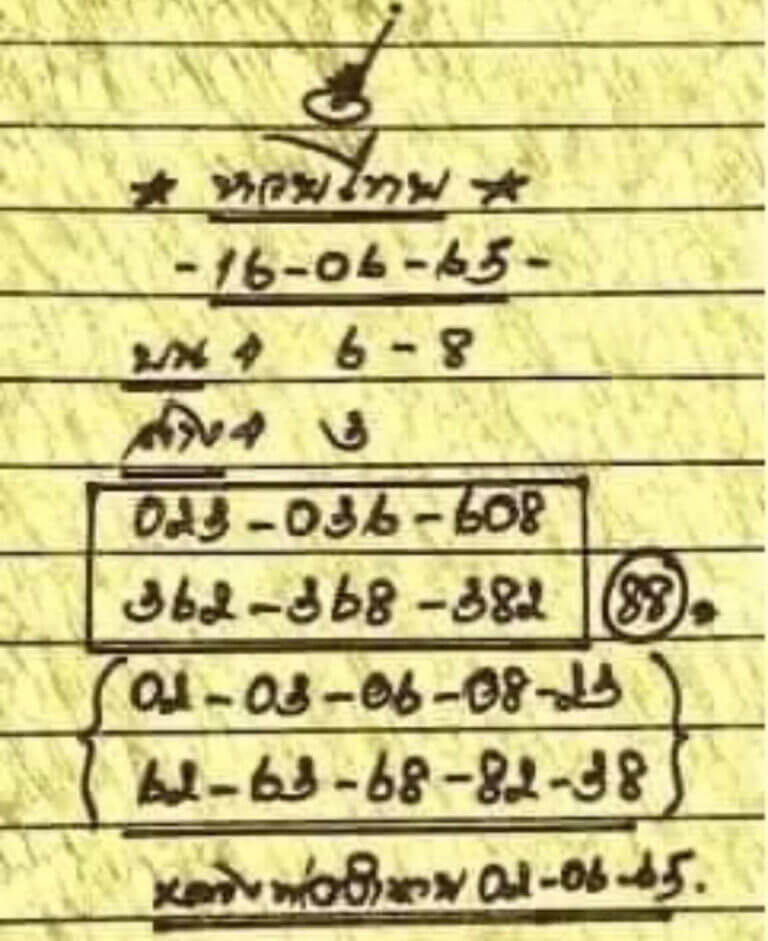 หอมไกล
-16-06-65-
บน 6-8
ล่าง 3
023-036-608
362-368-382 88.
02-03-06-08-23
62-63-68-82-38
02-06-65.